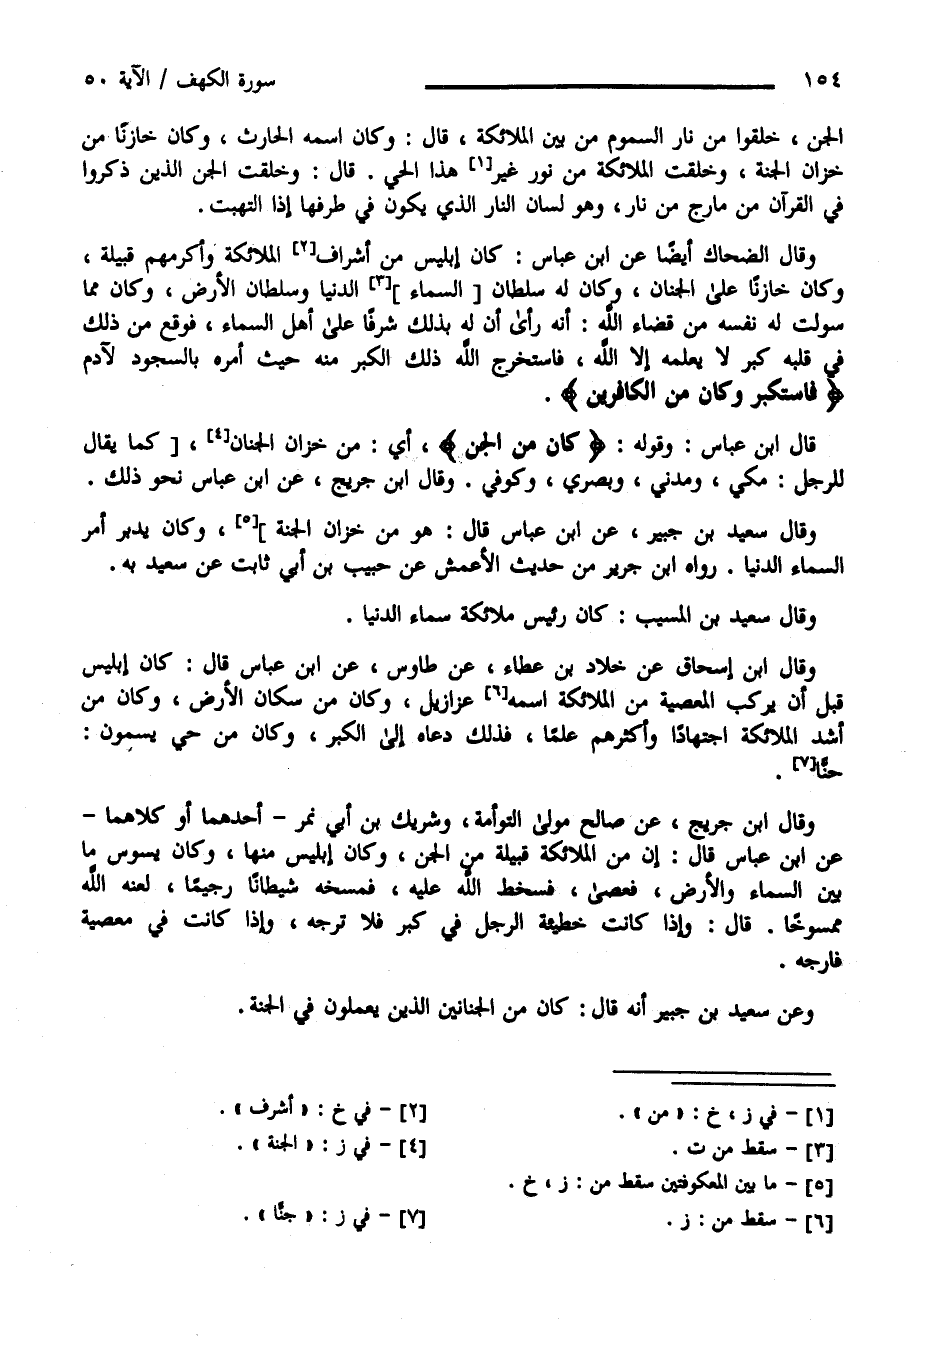 ١٥٤ سورة الكهف / الآية ٥٠
الجن ، خلقوا من نار السموم من بين الملائكة ، قال : وكان اسمه الحارث ، وكان خازنًا من
خزان الجنة ، وخلقت الملائكة من نور غير[١] هذا الحي . قال : وخلقت الجن الذين ذكروا
في القرآن من مارج من نار، وهو لسان النار الذي يكون في طرفها إذا التهبت.
وقال الضحاك أيضًا عن ابن عباس : كان إبليس من أشراف[٢] الملائكة وأكرمهم قبيلة ،
وكان خازنًا على الجنان ، وكان له سلطان [ السماء ][٣] الدنيا وسلطان الأرض ، وكان مما
سولت له نفسه من قضاء الله : أنه رأى أن له بذلك شرفًا على أهل السماء ، فوقع من ذلك
في قلبه كبر لا يعلمه إلا الله ، فاستخرج الله ذلك الكبر منه حيث أمره بالسجود لآدم
﴿ فاستكبر وكان من الكافرين ﴾ .
قال ابن عباس : وقوله : ﴿ كان من الجن ﴾ ، أي : من خزان الجنان[٤] ، [ كما يقال
للرجل : مكي ، ومدني ، وبصري ، وكوفي . وقال ابن جريج ، عن ابن عباس نحو ذلك .
وقال سعيد بن جبير ، عن ابن عباس قال : هو من خزان الجنة ][٥] ، وكان يدبر أمر
السماء الدنيا . رواه ابن جرير من حديث الأعمش عن حبيب بن أبي ثابت عن سعيد به.
وقال سعيد بن المسيب : كان رئيس ملائكة سماء الدنيا .
وقال ابن إسحاق عن خلاد بن عطاء ، عن طاوس ، عن ابن عباس قال : كان إبليس
قبل أن يركب المعصية من الملائكة اسمه[٦] عزازيل ، وكان من سكان الأرض ، وكان من
أشد الملائكة اجتهادًا وأكثرهم علمًا ، فذلك دعاه إلى الكبر ، وكان من حي يسمون :
حنًّا[٧] .
وقال ابن جريج ، عن صالح مولى التوأمة، وشريك بن أبي نمر - أحدهما أو كلاهما -
عن ابن عباس قال : إن من الملائكة قبيلة من الجن ، وكان إبليس منها ، وكان يسوس ما
بين السماء والأرض ، فعصى ، فسخط الله عليه ، فمسخه شيطانًا رجيمًا ، لعنه الله
ممسوخًا . قال : وإذا كانت خطيئة الرجل في كبر فلا ترجه ، وإذا كانت في معصية
فارجه .
وعن سعيد بن جبير أنه قال : كان من الجنانين الذين يعملون في الجنة.
[١] - في ز ، خ : « من » . [٢] - في خ : « أشرف » .
[٣] - سقط من ت . [٤] - في ز : « الجنة » .
[٥] - ما بين المعكوفتين سقط من : ز ، خ .
[٦] - سقط من : ز . [٧] - في ز : « جنًّا » .